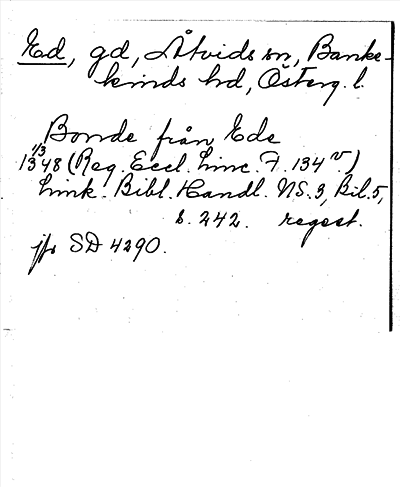 Ed, gd, Åtvids sn, Banke-
kinds hd, Österg. l.
Bonde från Ede
1/3
1348 (Reg. Eccl. Linc. F. 134 v)
Link. Bibl. Handl. NS. 3, Bil. 5,
s. 242. regest.
jfr SD 4290.